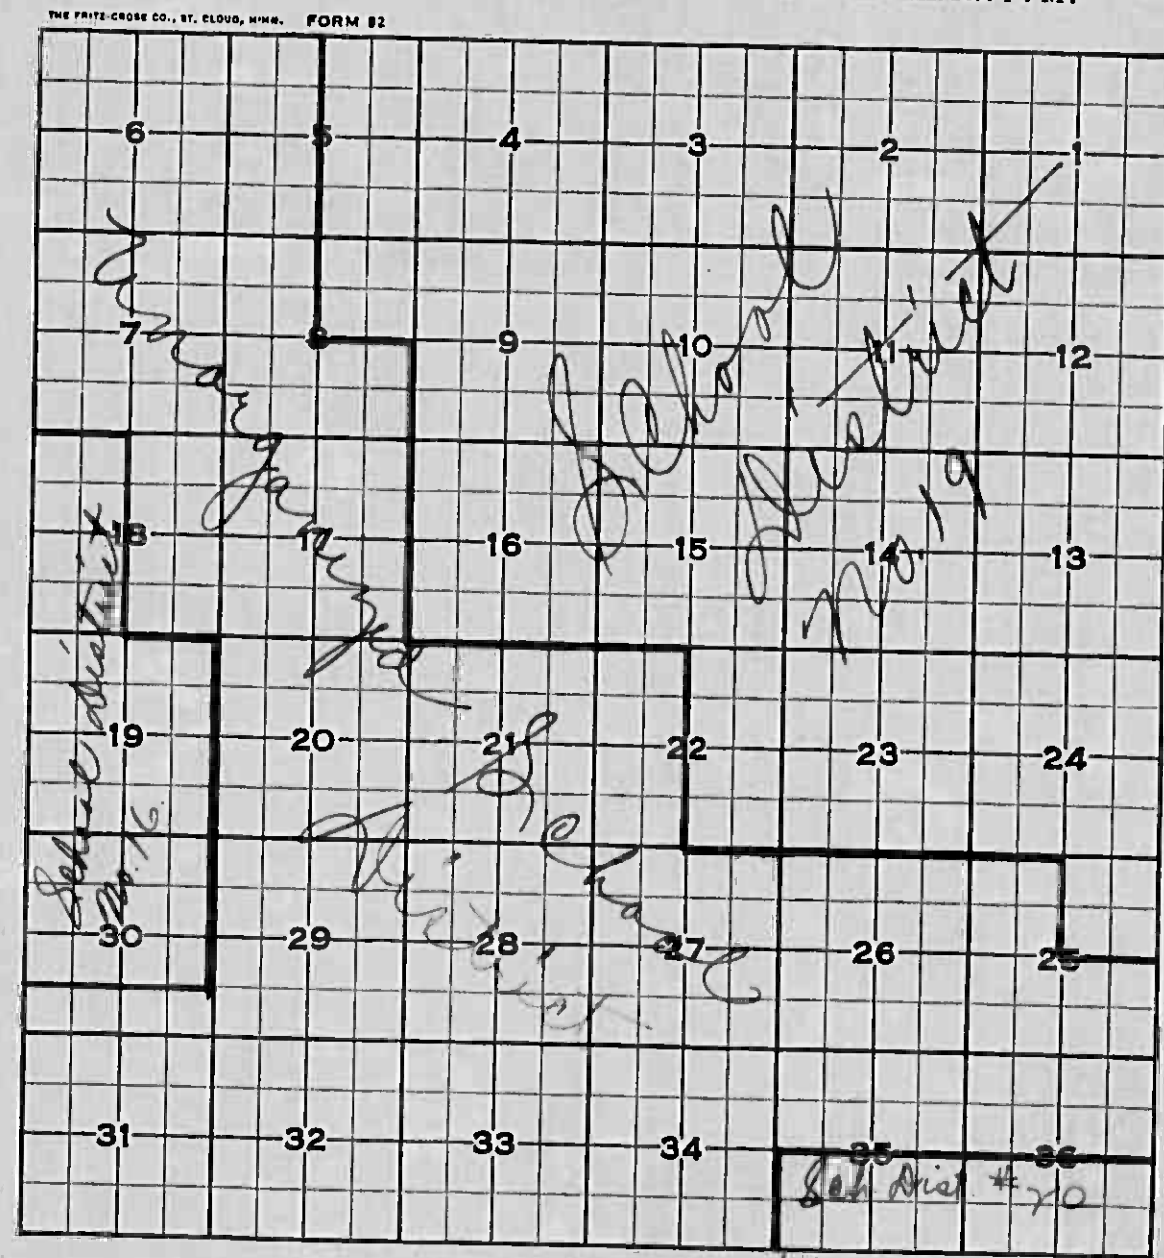 THE FRITZ-CROSS CO., ST. CLOUD, MINN. FORM 82
6 5 4 3 2 1
7 8 9 10 11 12
18 17 16 15 14 13
19 20 21 22 23 24
30 29 28 27 26 25
31 32 33 34 35 36
School
District
No. 19
Unorganized
School
District
School District
No. 16
Sch Dist # 70